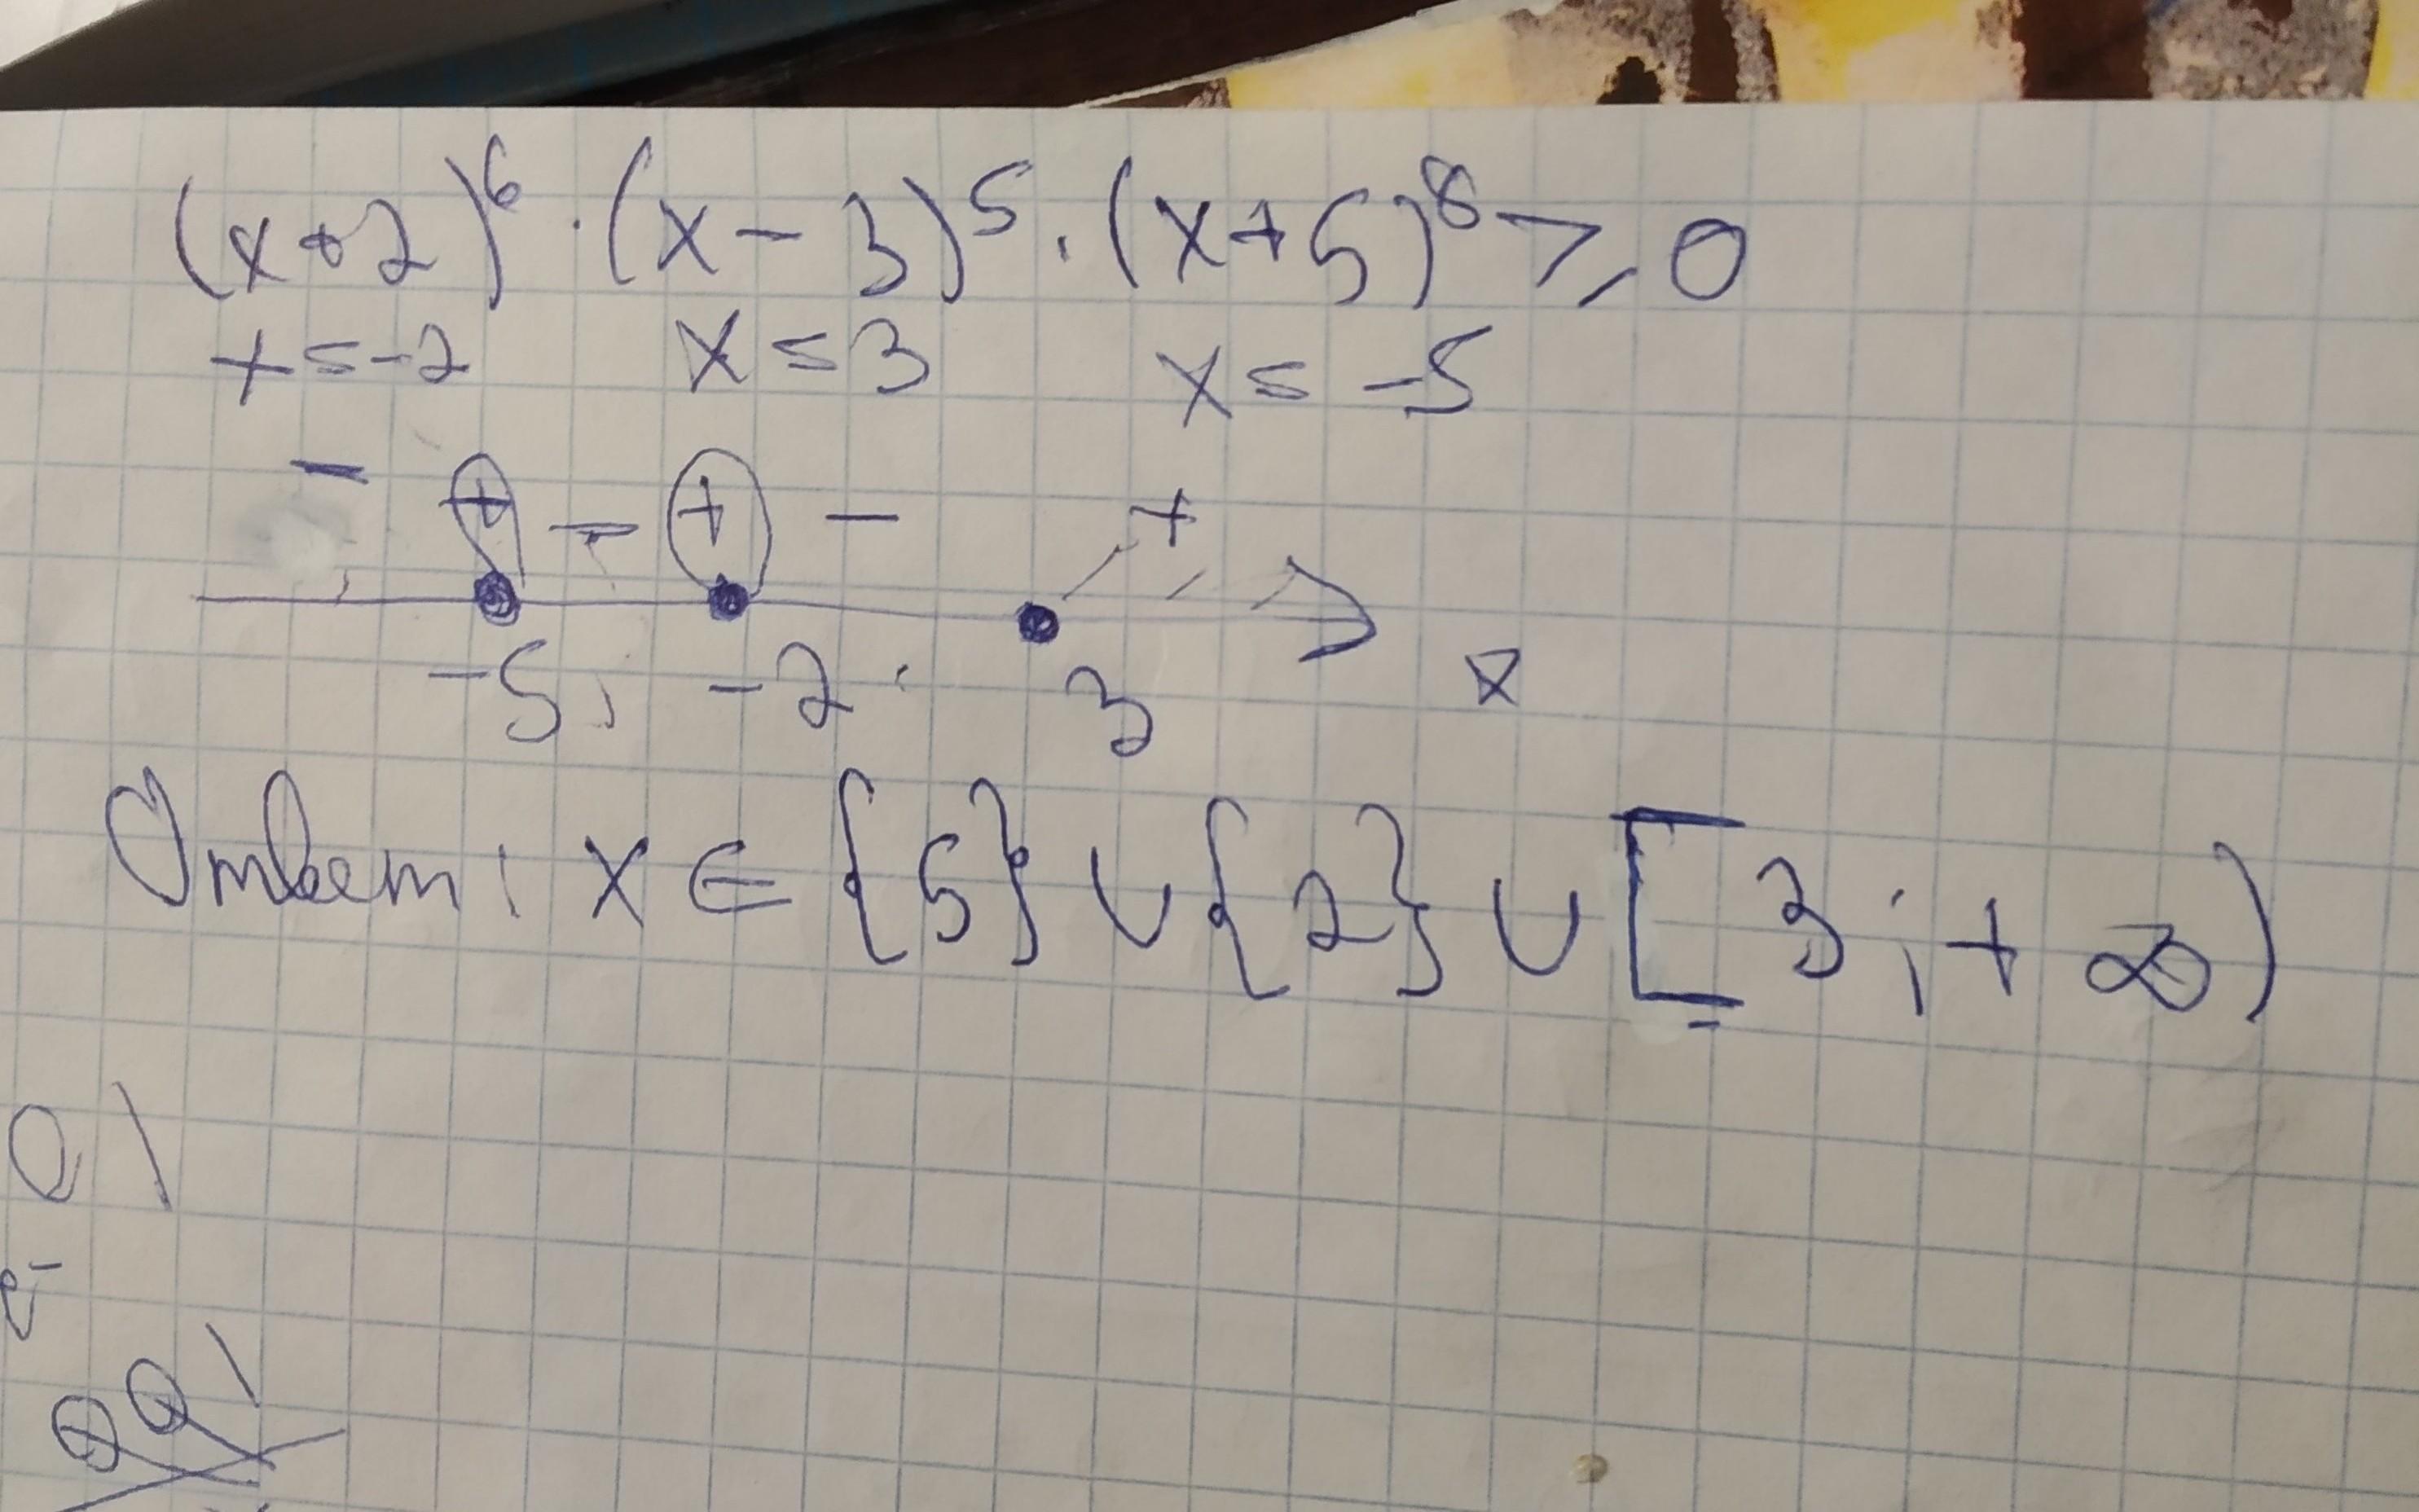 (x+2)⁶ · (x-3)⁵ · (x+5)⁸ ⩾ 0
x=-2 x=3 x=-5
- + - + - +
-5 -2 3 x
Ответ: x ∈ {5} ∪ {2} ∪ [3; +∞)